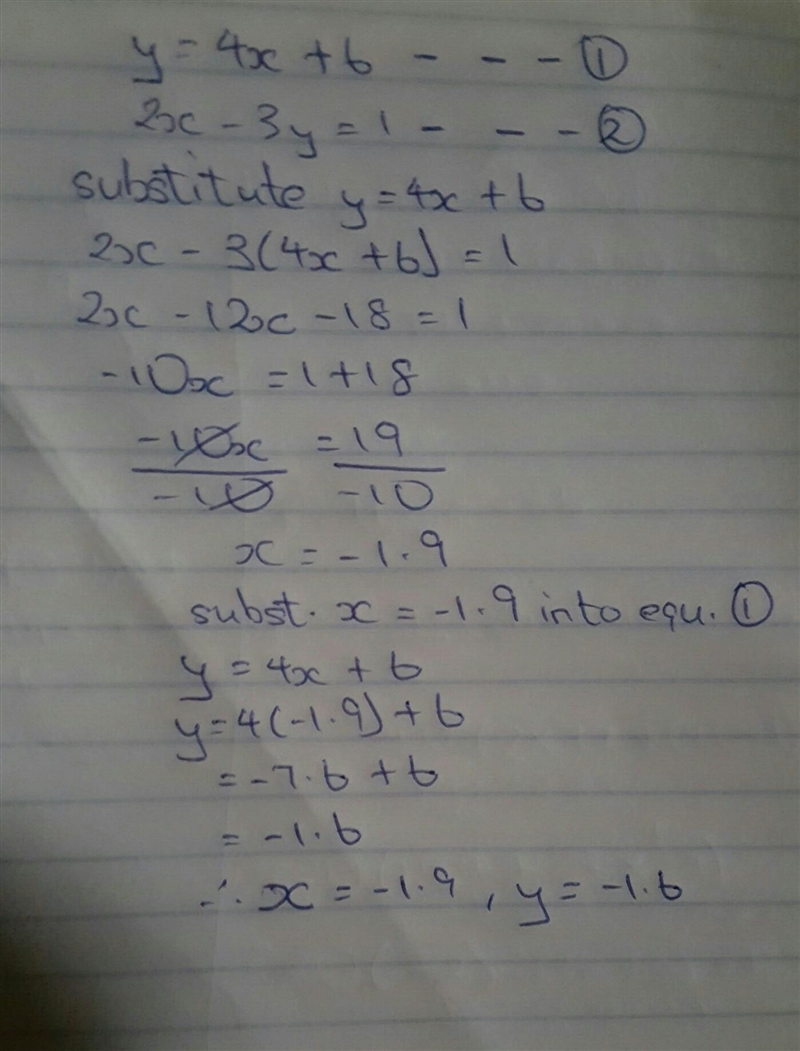 y = 4x + 6 - - - ①
2x - 3y = 1 - - - ②
substitute y = 4x + 6
2x - 3(4x + 6) = 1
2x - 12x - 18 = 1
-10x = 1 + 18
-10x = 19
-10 -10
x = -1.9
subst. x = -1.9 into equ. ①
y = 4x + 6
y = 4(-1.9) + 6
= -7.6 + 6
= -1.6
∴ x = -1.9, y = -1.6